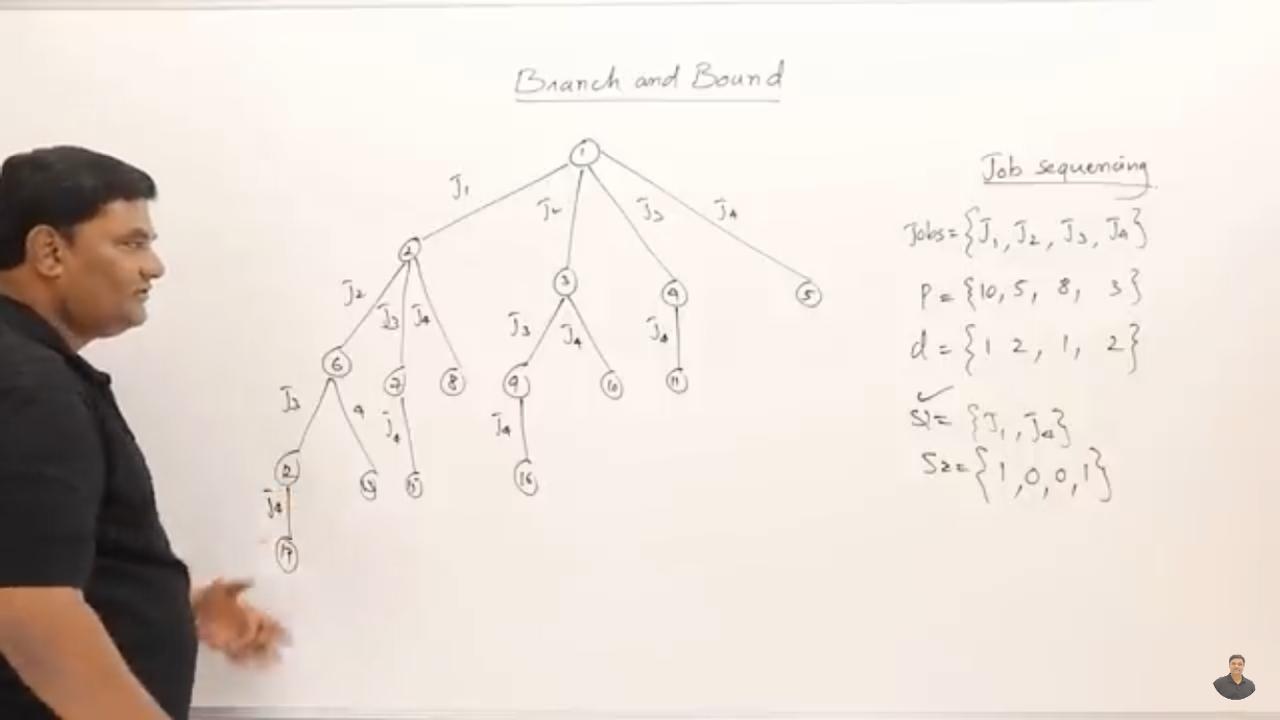 Branch and Bound
1
J1
J2
J3
J4
2
3
4
5
J2
J3
J4
J3
J4
J4
6
7
8
9
10
11
J3
4
J4
J4
15
16
J4
17
Job sequencing
Jobs = {J1, J2, J3, J4}
P = {10, 5, 8, 3}
d = {1 2, 1, 2}
S1 = {J1, J4}
S2 = {1, 0, 0, 1}